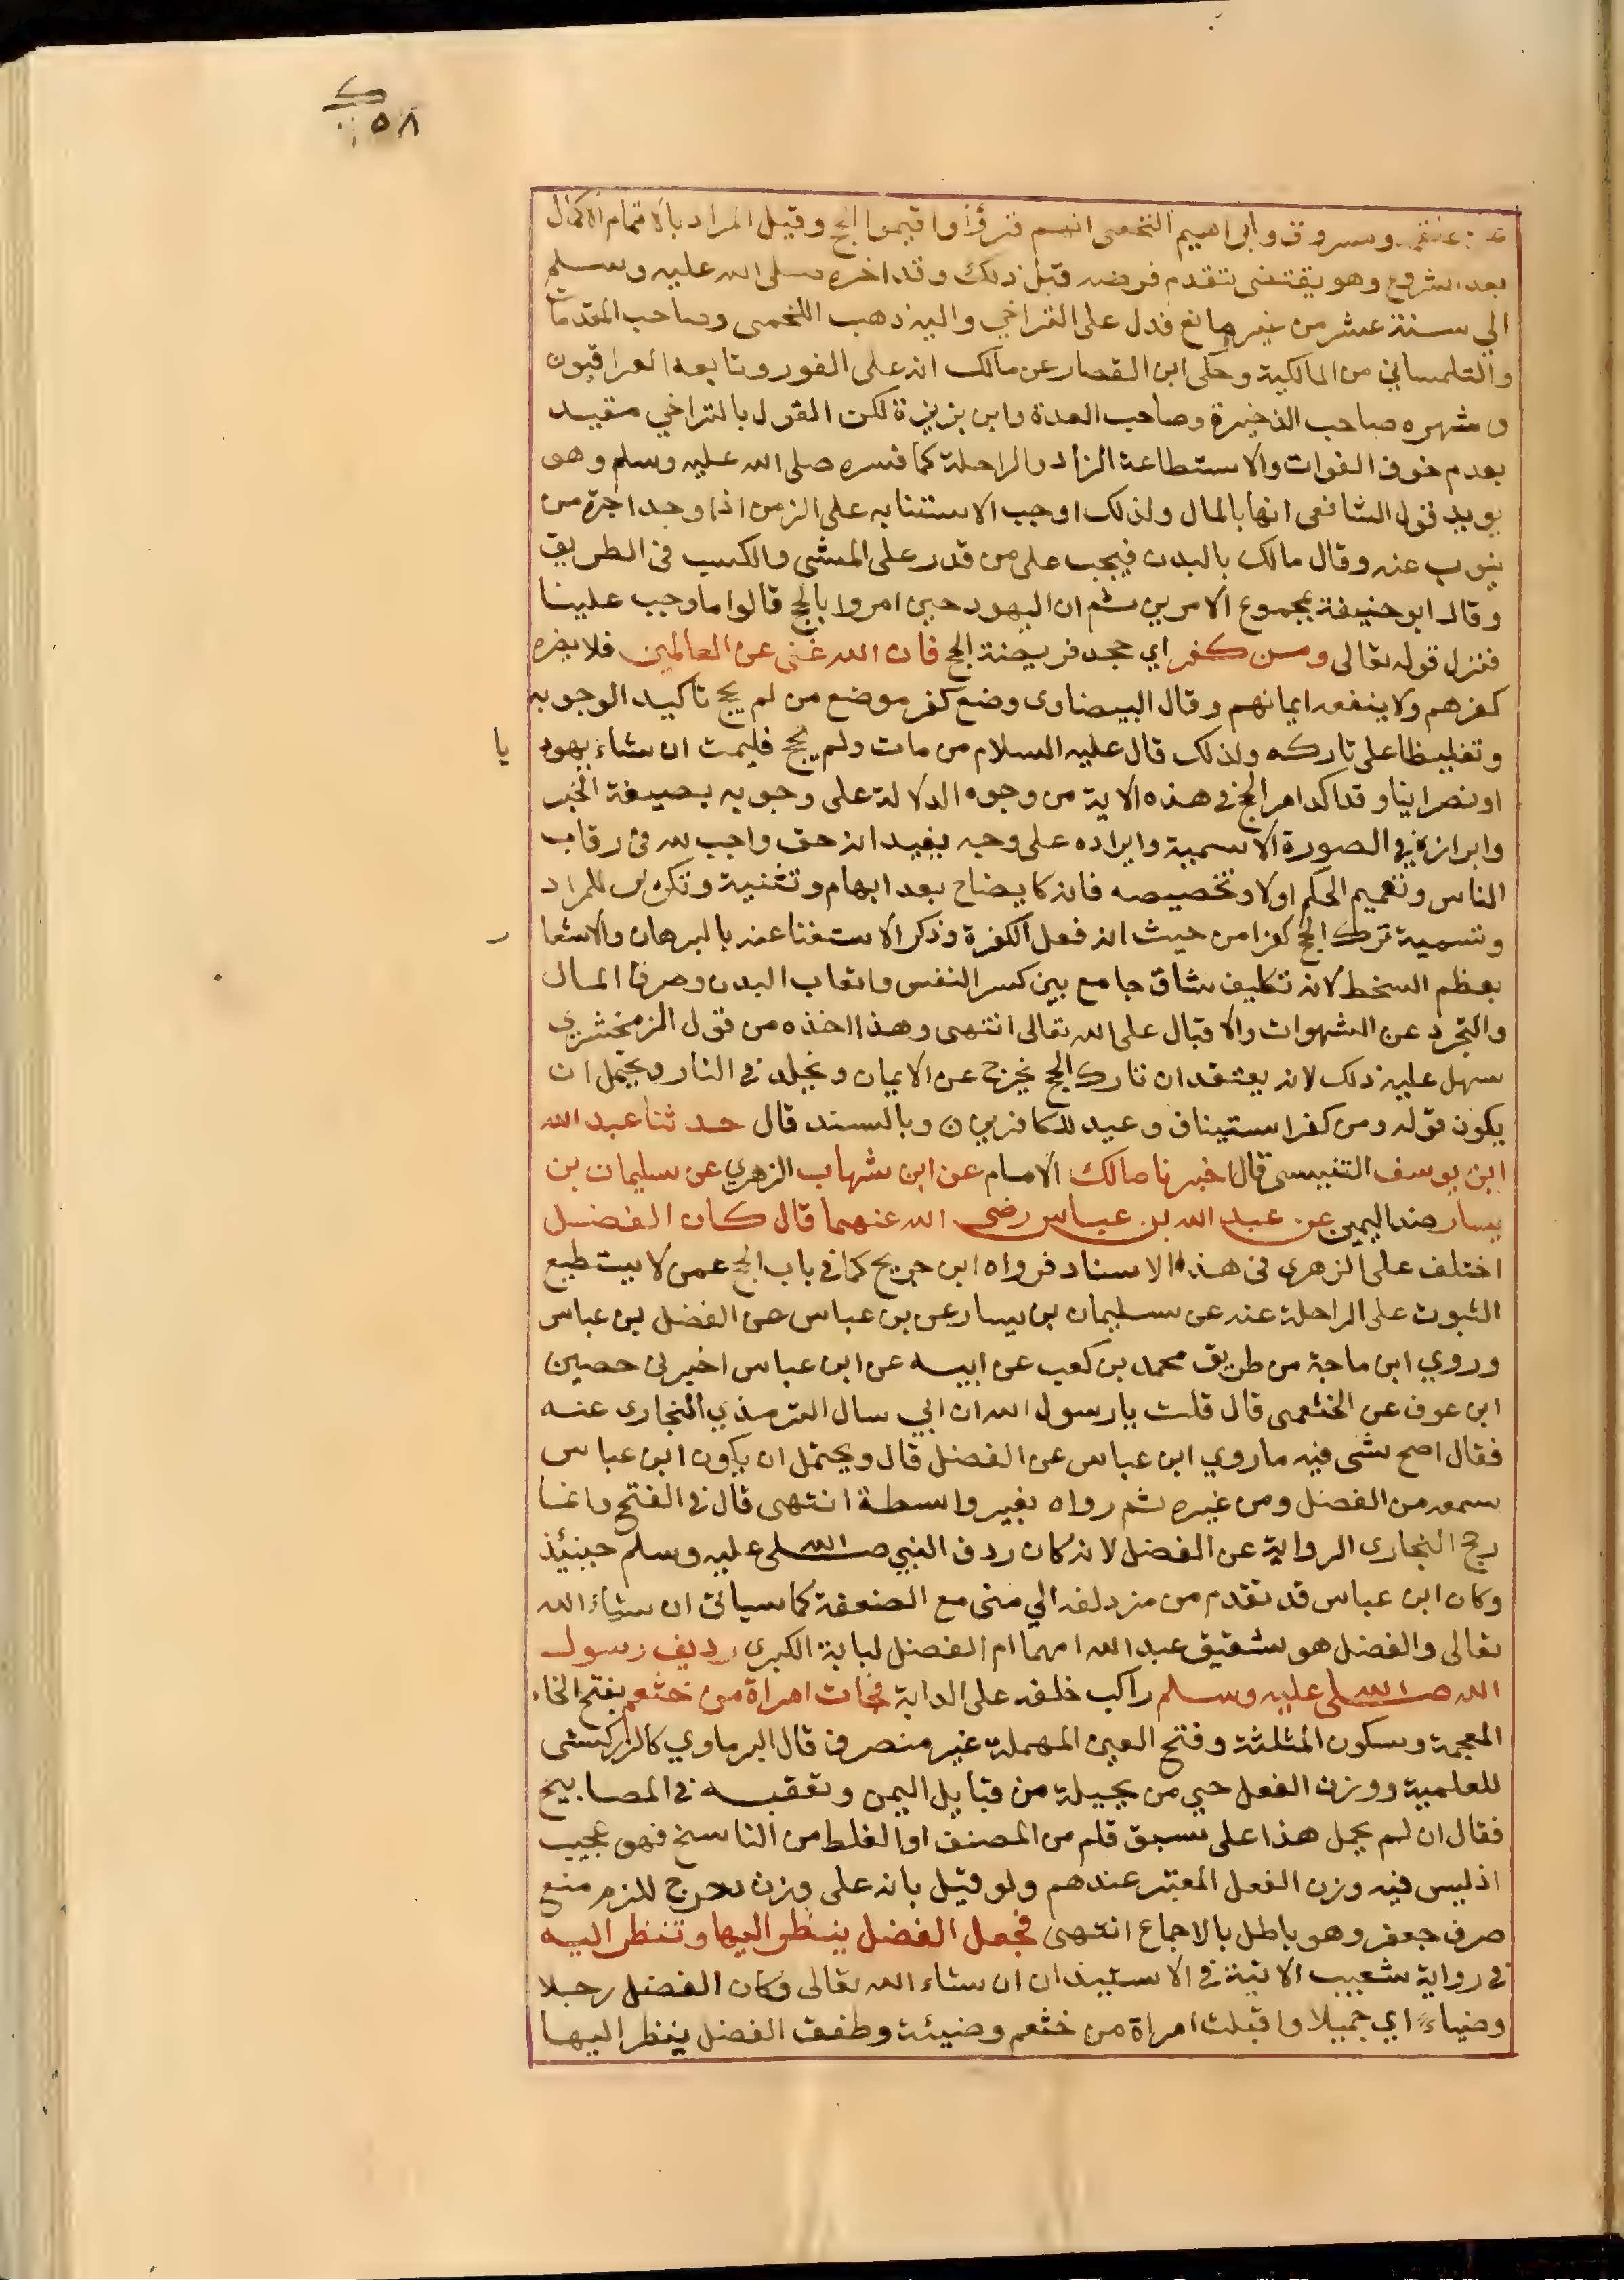 ك
٥٨
علقمة ومسروق وابراهيم النخعى انهم قرؤا واقيموا الحج وقيل المراد بالاتمام الاكمال
بعد الشروع وهو يقتضى تقدم فرضه قبل ذلك وقد اخره صلى الله عليه وسلم
الي سنة عشر من غير مانع فدل على التراخي واليه ذهب اللخمى وصاحب المقدمات
والتلمساني من المالكية وحكى ابن القصار عن مالك انه على الفور وتابعه العراقيون
وشهره صاحب الذخيرة وصاحب العمدة وابن بزيزة لكن القول بالتراخي مقيد
بعدم خوف الفوات والاستطاعة الزاد والراحلة كما فسره صلى الله عليه وسلم وهو
يويد قول الشافعى انها بالمال ولذلك اوجب الاستنابه على الزمن اذا وجد اجرة من
ينوب عنه وقال مالك بالبدن فيجب على من قدر على المشى والكسب فى الطريق
وقال ابو حنيفة بمجموع الامرين ثم ان اليهود حين امروا بالحج قالوا ما وجب علينا
فنزل قوله تعالى ومن كفر اي جحد فريضة الحج فان الله غنى عن العالمين فلا يضره
كفرهم ولا ينفعه ايمانهم وقال البيضاوى وضع كفر موضع من لم يحج تاكيد الوجوبه
وتغليظا على تاركه ولذلك قال عليه السلام من مات ولم يحج فليمت ان شاء يهود يا
او نصرانيا وقد اكد امر الحج في هذه الاية من وجوه الدلالة على وجوبه بصيغة الخبر
وابرازه في الصورة الاسمية وايراده على وجه يفيد انه حق واجب لله فى رقاب
الناس وتعميم الحكم اولا وتخصيصه فانه كايضاح بعد ابهام وتثنية وتكرير للمراد
وتسمية ترك الحج كفرا من حيث انه فعل الكفرة وذكر الاستغنا عنه بالبرهان والاشعا ر
بعظم السخط لانه تكليف شاق جامع بين كسر النفس واتعاب البدن وصرف المال
والتجرد عن الشهوات والاقبال على الله تعالى انتهى وهذا اخذه من قول الزمخشري
سهل عليه ذلك لانه يعتقد ان تارك الحج يخرج عن الايمان ويخلد في النار ويحتمل ان
يكون قوله ومن كفر استيناف وعيد للكافرين ن وبالسند قال حدثنا عبد الله
ابن يوسف التنيسى قال اخبرنا مالك الامام عن ابن شهاب الزهري عن سليمان بن
يسار ضد اليمين عن عبد الله بن عباس رضى الله عنهما قال كان الفضل
اختلف على الزهرى فى هذا الاسناد فرواه ابن جريج كما في باب الحج عمن لا يستطيع
الثبوت على الراحلة عنه عن سليمان بن يسار عن بن عباس عن الفضل بن عباس
وروي ابن ماجة من طريق محمد بن كعب عن ابيه عن ابن عباس اخبرنى حصين
ابن عوف عن الخثعمى قال قلت يا رسول الله ان ابي سال الترمذي البخارى عنه
فقال اصح شى فيه ماروي ابن عباس عن الفضل قال ويحتمل ان يكون ابن عباس
سمعه من الفضل ومن غيره ثم رواه بغير واسطة انتهى قال في الفتح وانما
رجح البخارى الرواية عن الفضل لانه كان ردف النبي صلى الله عليه وسلم حينئذ
وكان ابن عباس قد تقدم من مزدلفه الي منى مع الضعفة كما سيائى ان شاء الله
تعالى والفضل هو شقيق عبد الله امهما ام الفضل لبابة الكبرى رديف رسول
الله صلى الله عليه وسلم راكب خلفه على الدابة فجات امراة من خثعم بفتح الخاء
المعجمة وسكون المثلثة وفتح العين المهملة غير منصرف قال البرماوي كالزركشى
للعلمية ووزن الفعل حي من بجيلة من قبايل اليمن وتعقبه في المصابيح
فقال ان لم يحمل هذا على سبق قلم من المصنف او الغلط من الناسخ فهو عجيب
اذ ليس فيه وزن الفعل المعتبر عندهم ولو قيل بانه على وزن دحرج للزم منع
صرف جعفر وهو باطل بالاجماع انتهى فجعل الفضل ينظر اليها وتنظر اليه
في رواية شعيب الاتية في الاستيذان ان شاء الله تعالى وكان الفضل رجلا
وضياءً اي جميلا واقبلت امراة من خثعم وضيئة وطفق الفضل ينظر اليها